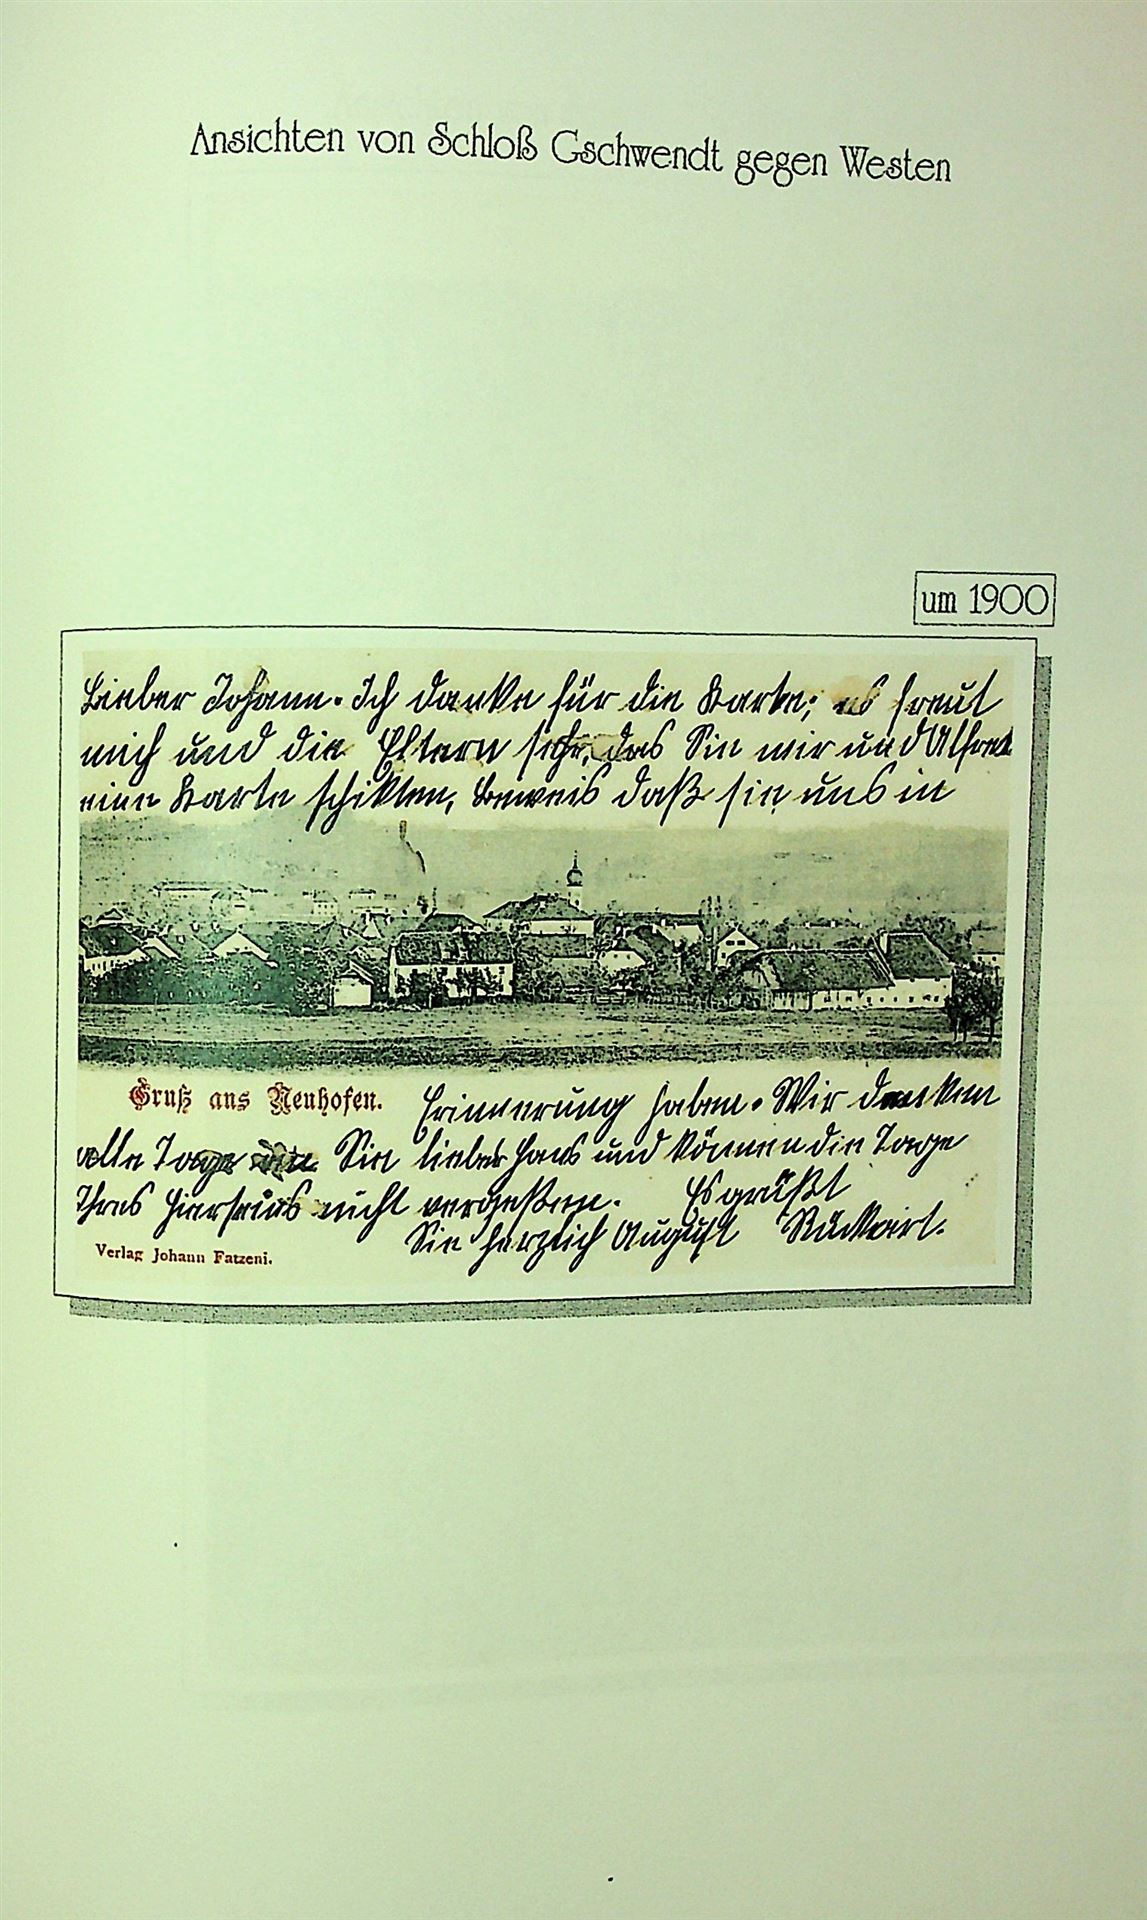 Ansichten von Schloß Gschwendt gegen Westen
um 1900
Lieber Johann. Ich danke für die Karte; es freut
mich und die Eltern sehr, das Sie mir und Alfred
eine Karte schikten, Beweis daß sie uns in
Gruß aus Neuhofen.
Erinnerung haben. Wir denken
alle Tage an Sie lieber Hans und können die Tage
Ihres Hierseins nicht vergeßen. Es grüßt
Sie herzlich August Rückert.
Verlag Johann Fatzeni.